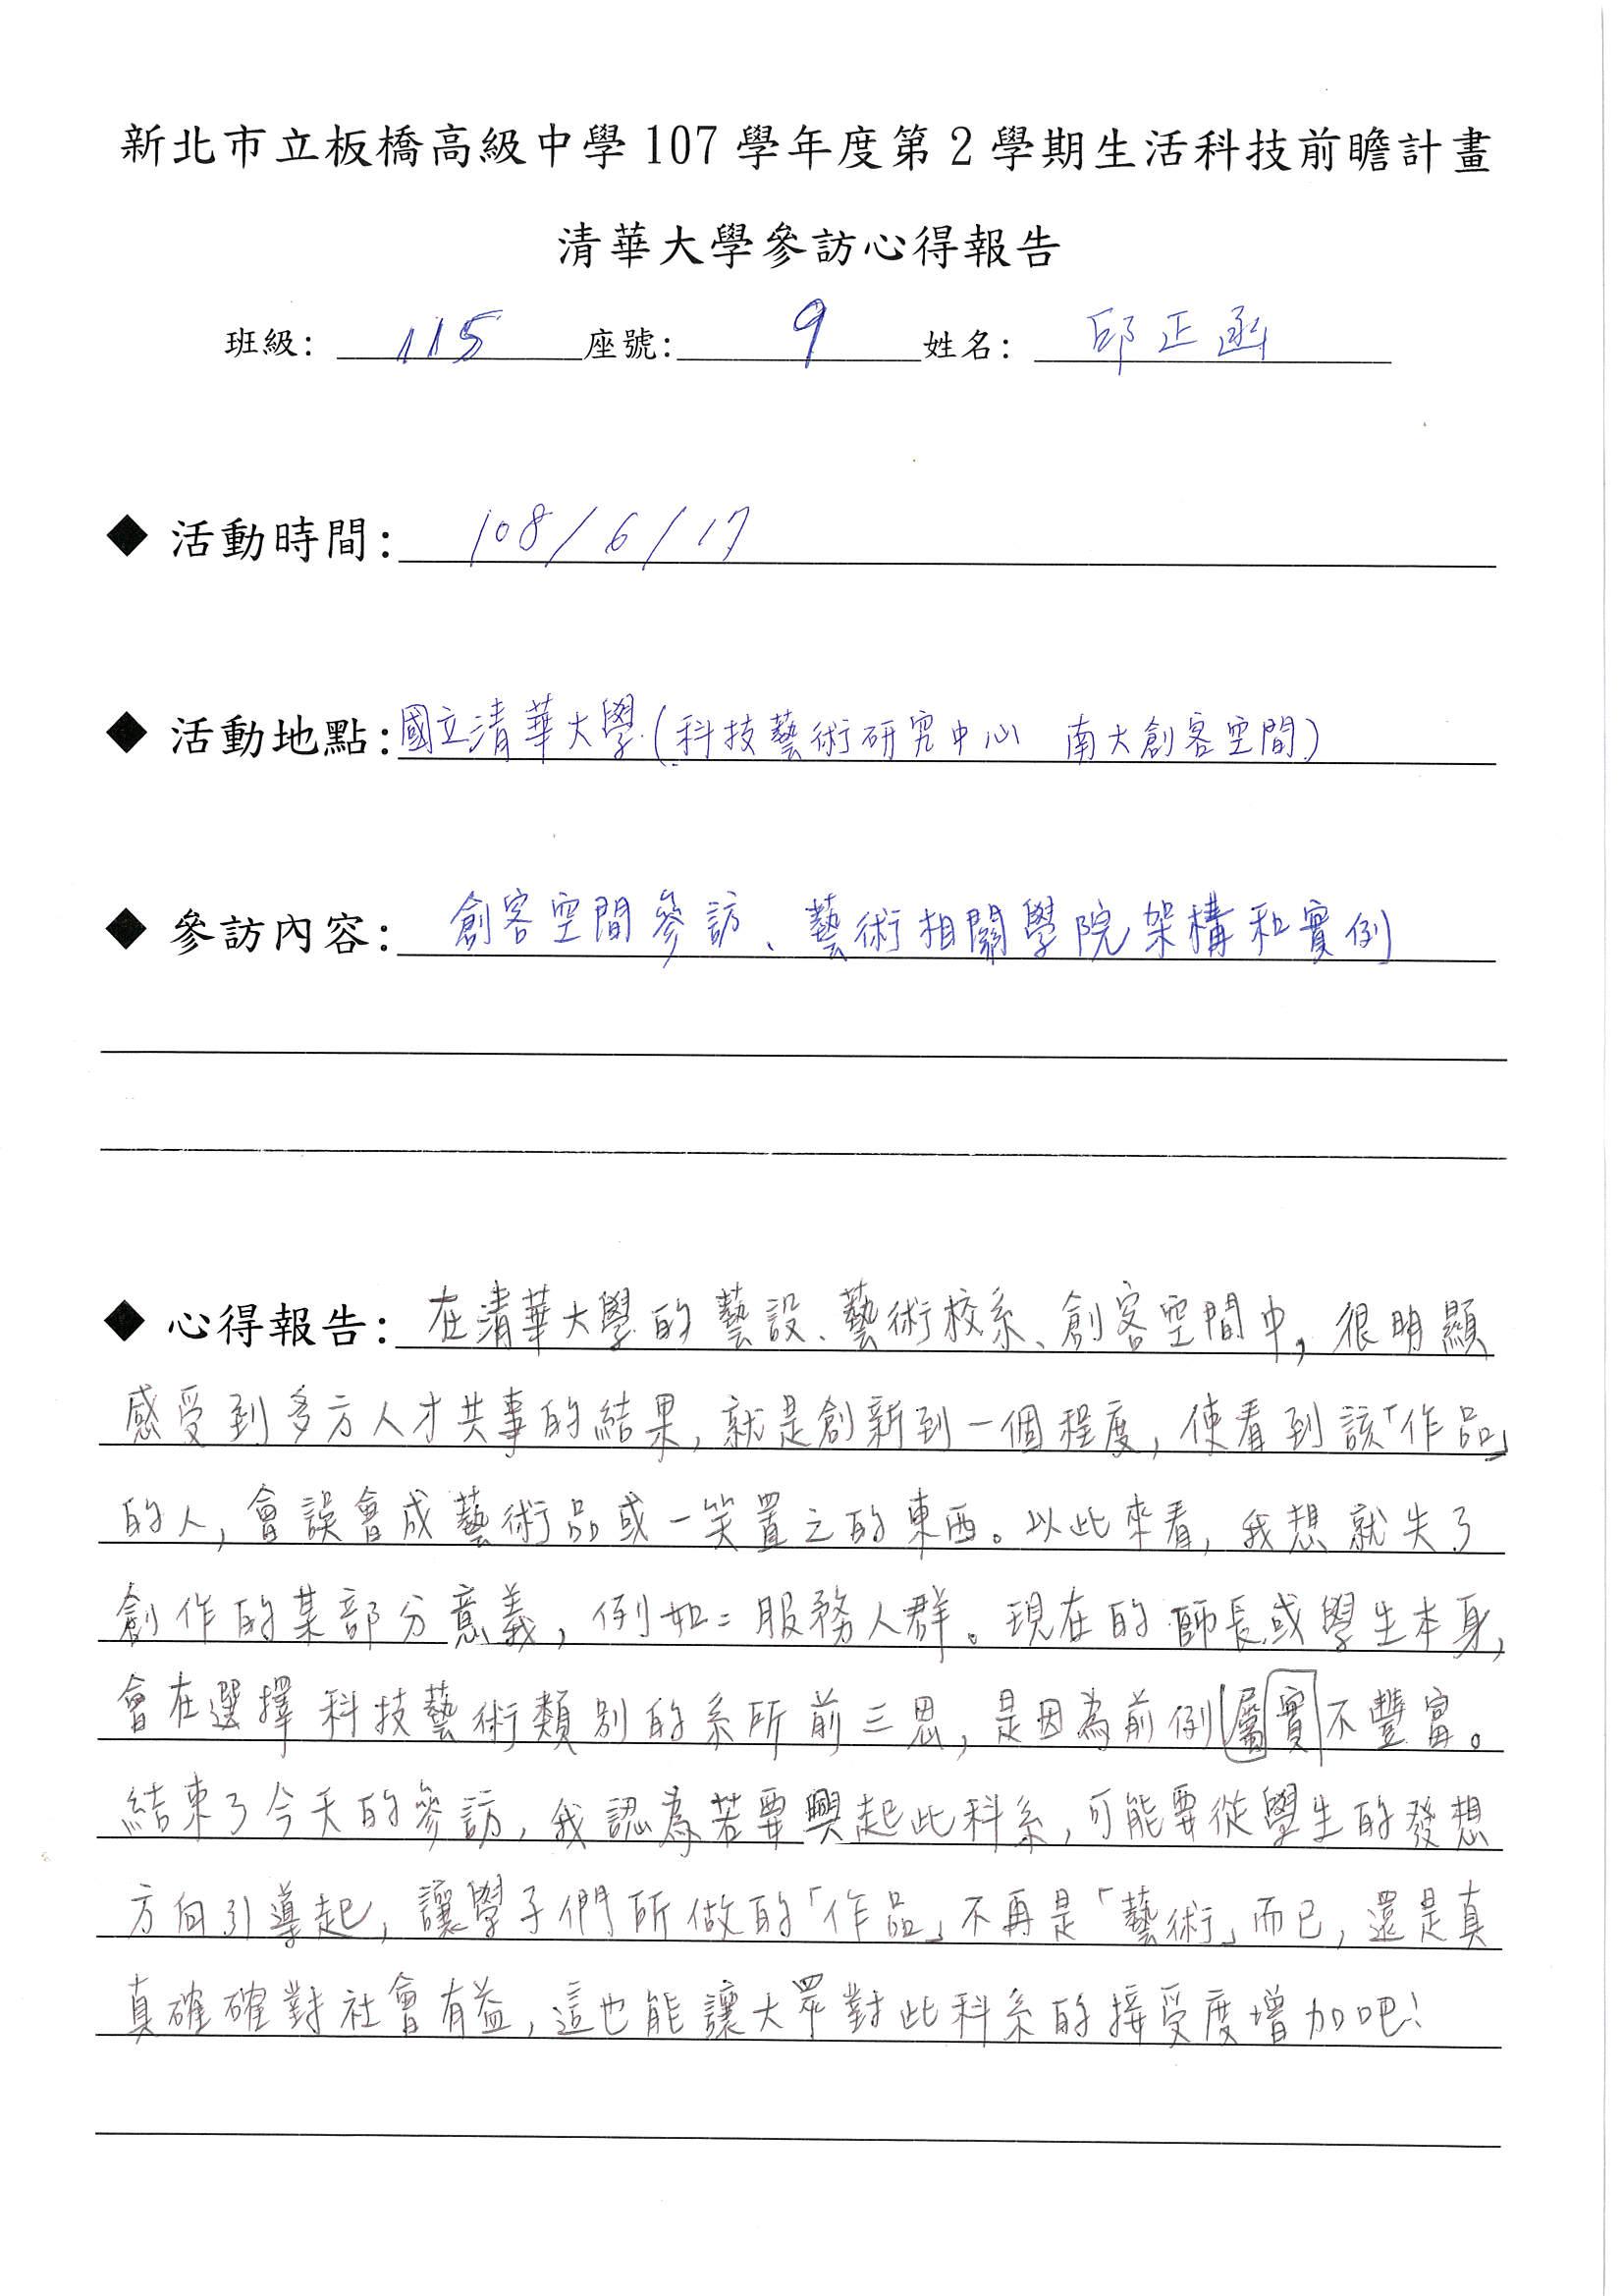 新北市立板橋高級中學107學年度第2學期生活科技前瞻計畫
清華大學參訪心得報告
班級：115座號：9姓名：邱正函
◆ 活動時間：108/6/17
◆ 活動地點：國立清華大學(科技藝術研究中心 南大創客空間)
◆ 參訪內容：創客空間參訪、藝術相關學院架構和實例
◆ 心得報告：在清華大學的藝設、藝術校系、創客空間中，很明顯
感受到多方人才共事的結果，就是創新到一個程度，使看到該「作品」
的人，會誤會成藝術品或一笑置之的東西。以此來看，我想就失了
創作的某部分意義，例如：服務人群。現在的師長或學生本身，
會在選擇科技藝術類別的系所前三思，是因為前例屬實不豐富。
結束了今天的參訪，我認為若要興起此科系，可能要從學生的發想
方向引導起，讓學子們所做的「作品」不再是「藝術」而已，還是真
真確確對社會有益，這也能讓大眾對此科系的接受度增加吧！